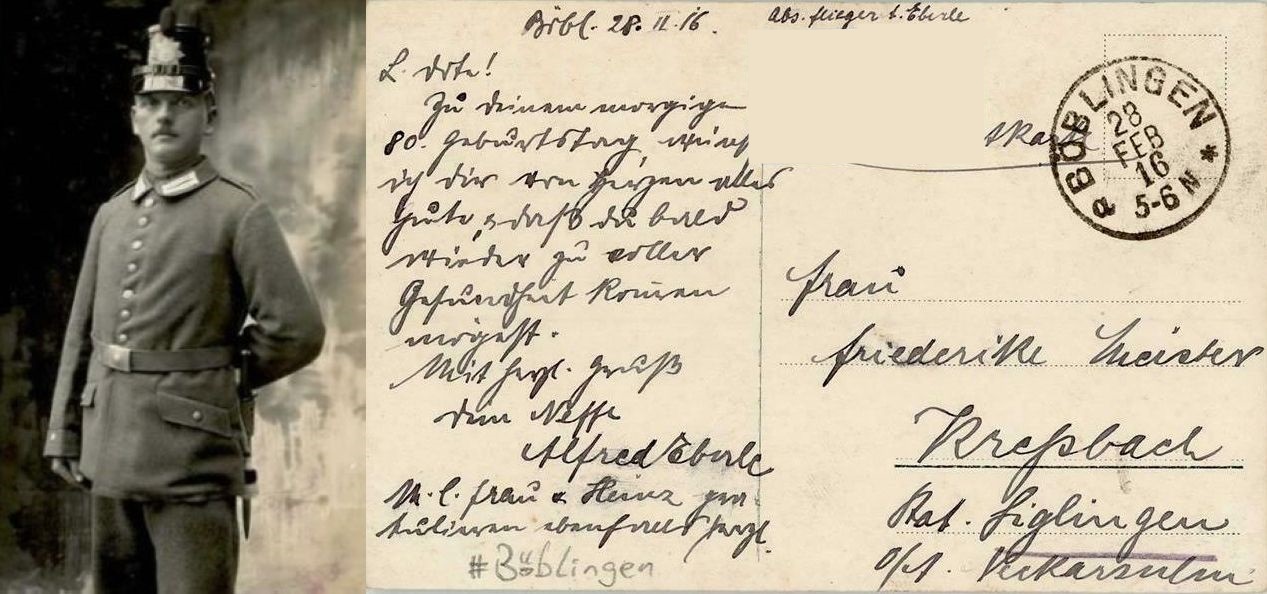 Böbl. 28. II. 16.
Abs. flieger t. Eberle
L. Dote!
Zu deinem morgigen
80. Geburtstag, wünsch
ich dir von Herzen alles
Gute, daß du bald
wieder zu voller
Gesundheit kommen
mögest.
Mit herzl. Gruß
Dein Neffe
Alfred Eberle
M. l. Frau & Heinz gra-
tulieren ebenfalls herzl.
#Böblingen
BÖBLINGEN
28
FEB
16
5-6 N
Frau
Friederike Meister
Kreßbach
Pat. Siglingen
O/A. Neckarsulm